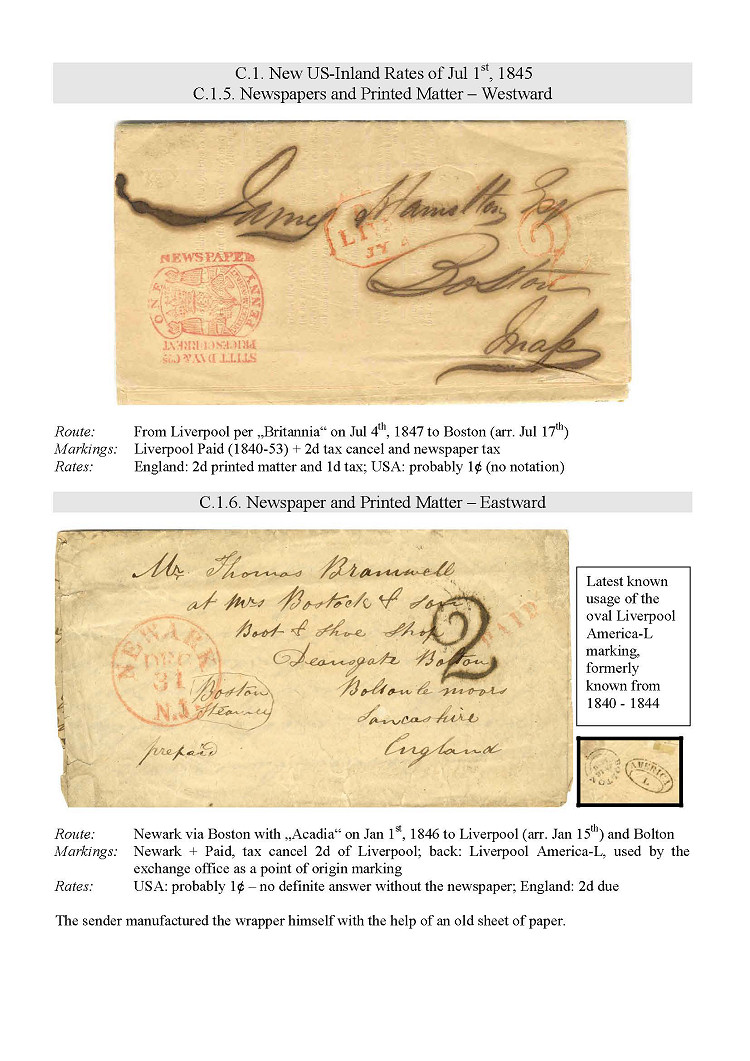 C.1. New US-Inland Rates of Jul 1st, 1845
C.1.5. Newspapers and Printed Matter – Westward
James Hamilton Esq
Boston
Mass
2
NEWSPAPER
ONE
PENNY
STITT DAY & Cos
PRICES CURRENT
Route: From Liverpool per „Britannia“ on Jul 4th, 1847 to Boston (arr. Jul 17th)
Markings: Liverpool Paid (1840-53) + 2d tax cancel and newspaper tax
Rates: England: 2d printed matter and 1d tax; USA: probably 1¢ (no notation)
C.1.6. Newspaper and Printed Matter – Eastward
Mr Thomas Bramwell
at Mrs Bostock & Son
Boot & Shoe Shop
Deansgate Bolton
Bolton le moors
Lancashire
England
NEWARK
DEC
31
N.J.
Boston
Steamer
prepaid
2
Latest known
usage of the
oval Liverpool
America-L
marking,
formerly
known from
1840 - 1844
BOLTON
AMERICA
L
Route: Newark via Boston with „Acadia“ on Jan 1st, 1846 to Liverpool (arr. Jan 15th) and Bolton
Markings: Newark + Paid, tax cancel 2d of Liverpool; back: Liverpool America-L, used by the
exchange office as a point of origin marking
Rates: USA: probably 1¢ – no definite answer without the newspaper; England: 2d due
The sender manufactured the wrapper himself with the help of an old sheet of paper.